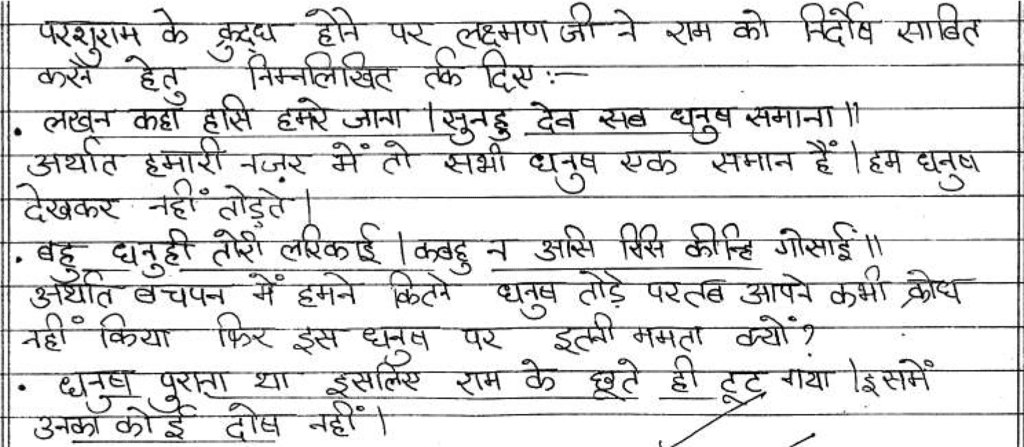 परशुराम के क्रुद्ध होने पर लक्ष्मण जी ने राम को निर्दोष साबित
करने हेतु निम्नलिखित तर्क दिए :—
• लखन कहा हसि हमरे जाना । सुनहु देव सब धनुष समाना ॥
अर्थात हमारी नज़र में तो सभी धनुष एक समान हैं । हम धनुष
देखकर नहीं तोड़ते ।
• बहु धनुही तोरी लरिकाई । कबहु न असि रिसि कीन्हि गोसाई ॥
अर्थात बचपन में हमने कितने धनुष तोड़े पर तब आपने कभी क्रोध
नहीं किया फिर इस धनुष पर इतनी ममता क्यों ?
• धनुष पुराना था इसलिए राम के छूते ही टूट गया । इसमें
उनका कोई दोष नहीं ।